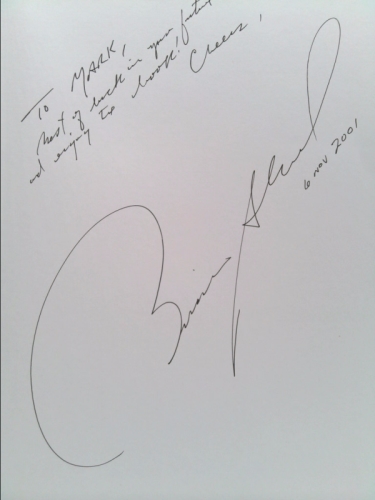 To MARK,
Best of luck in your future
and enjoy the book!
Cheers,
Brian
6 NOV 2001